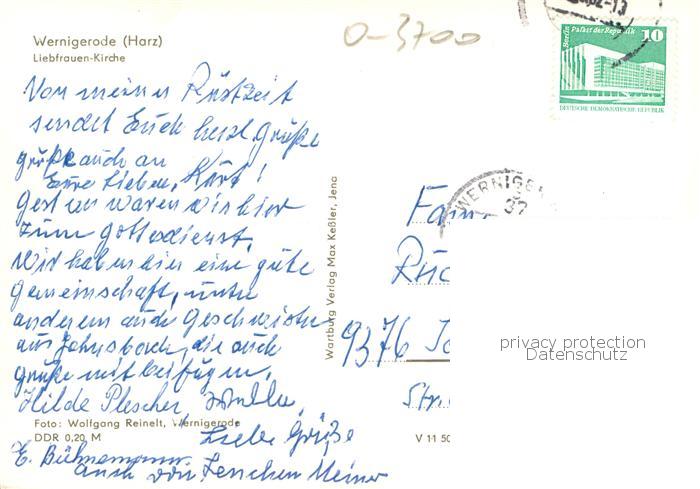 Wernigerode (Harz)
Liebfrauen-Kirche
0-3700
Berlin Palast der Republik 10
DEUTSCHE DEMOKRATISCHE REPUBLIK
Von meiner Rüstzeit
sendet Euch herzl. Grüße
grüße auch an
Eure Lieben, Kurt!
Gestern waren wir hier
zum Gottesdienst.
Wir haben hier eine gute
Gemeinschaft, unter
anderem auch Geschwister
aus Johnsbach, die auch
Grüße mit beifügen.
Hilde Plescher
Liebe Grüße
E. Bühnemann
auch von Lenchen Meiner
Foto: Wolfgang Reinelt, Wernigerode
DDR 0,20 M
V 11 50
Wartburg Verlag Max Keßler, Jena
WERNIGE
37
Fam.
Rüc
9376 Jo
Str.
privacy protection
Datenschutz